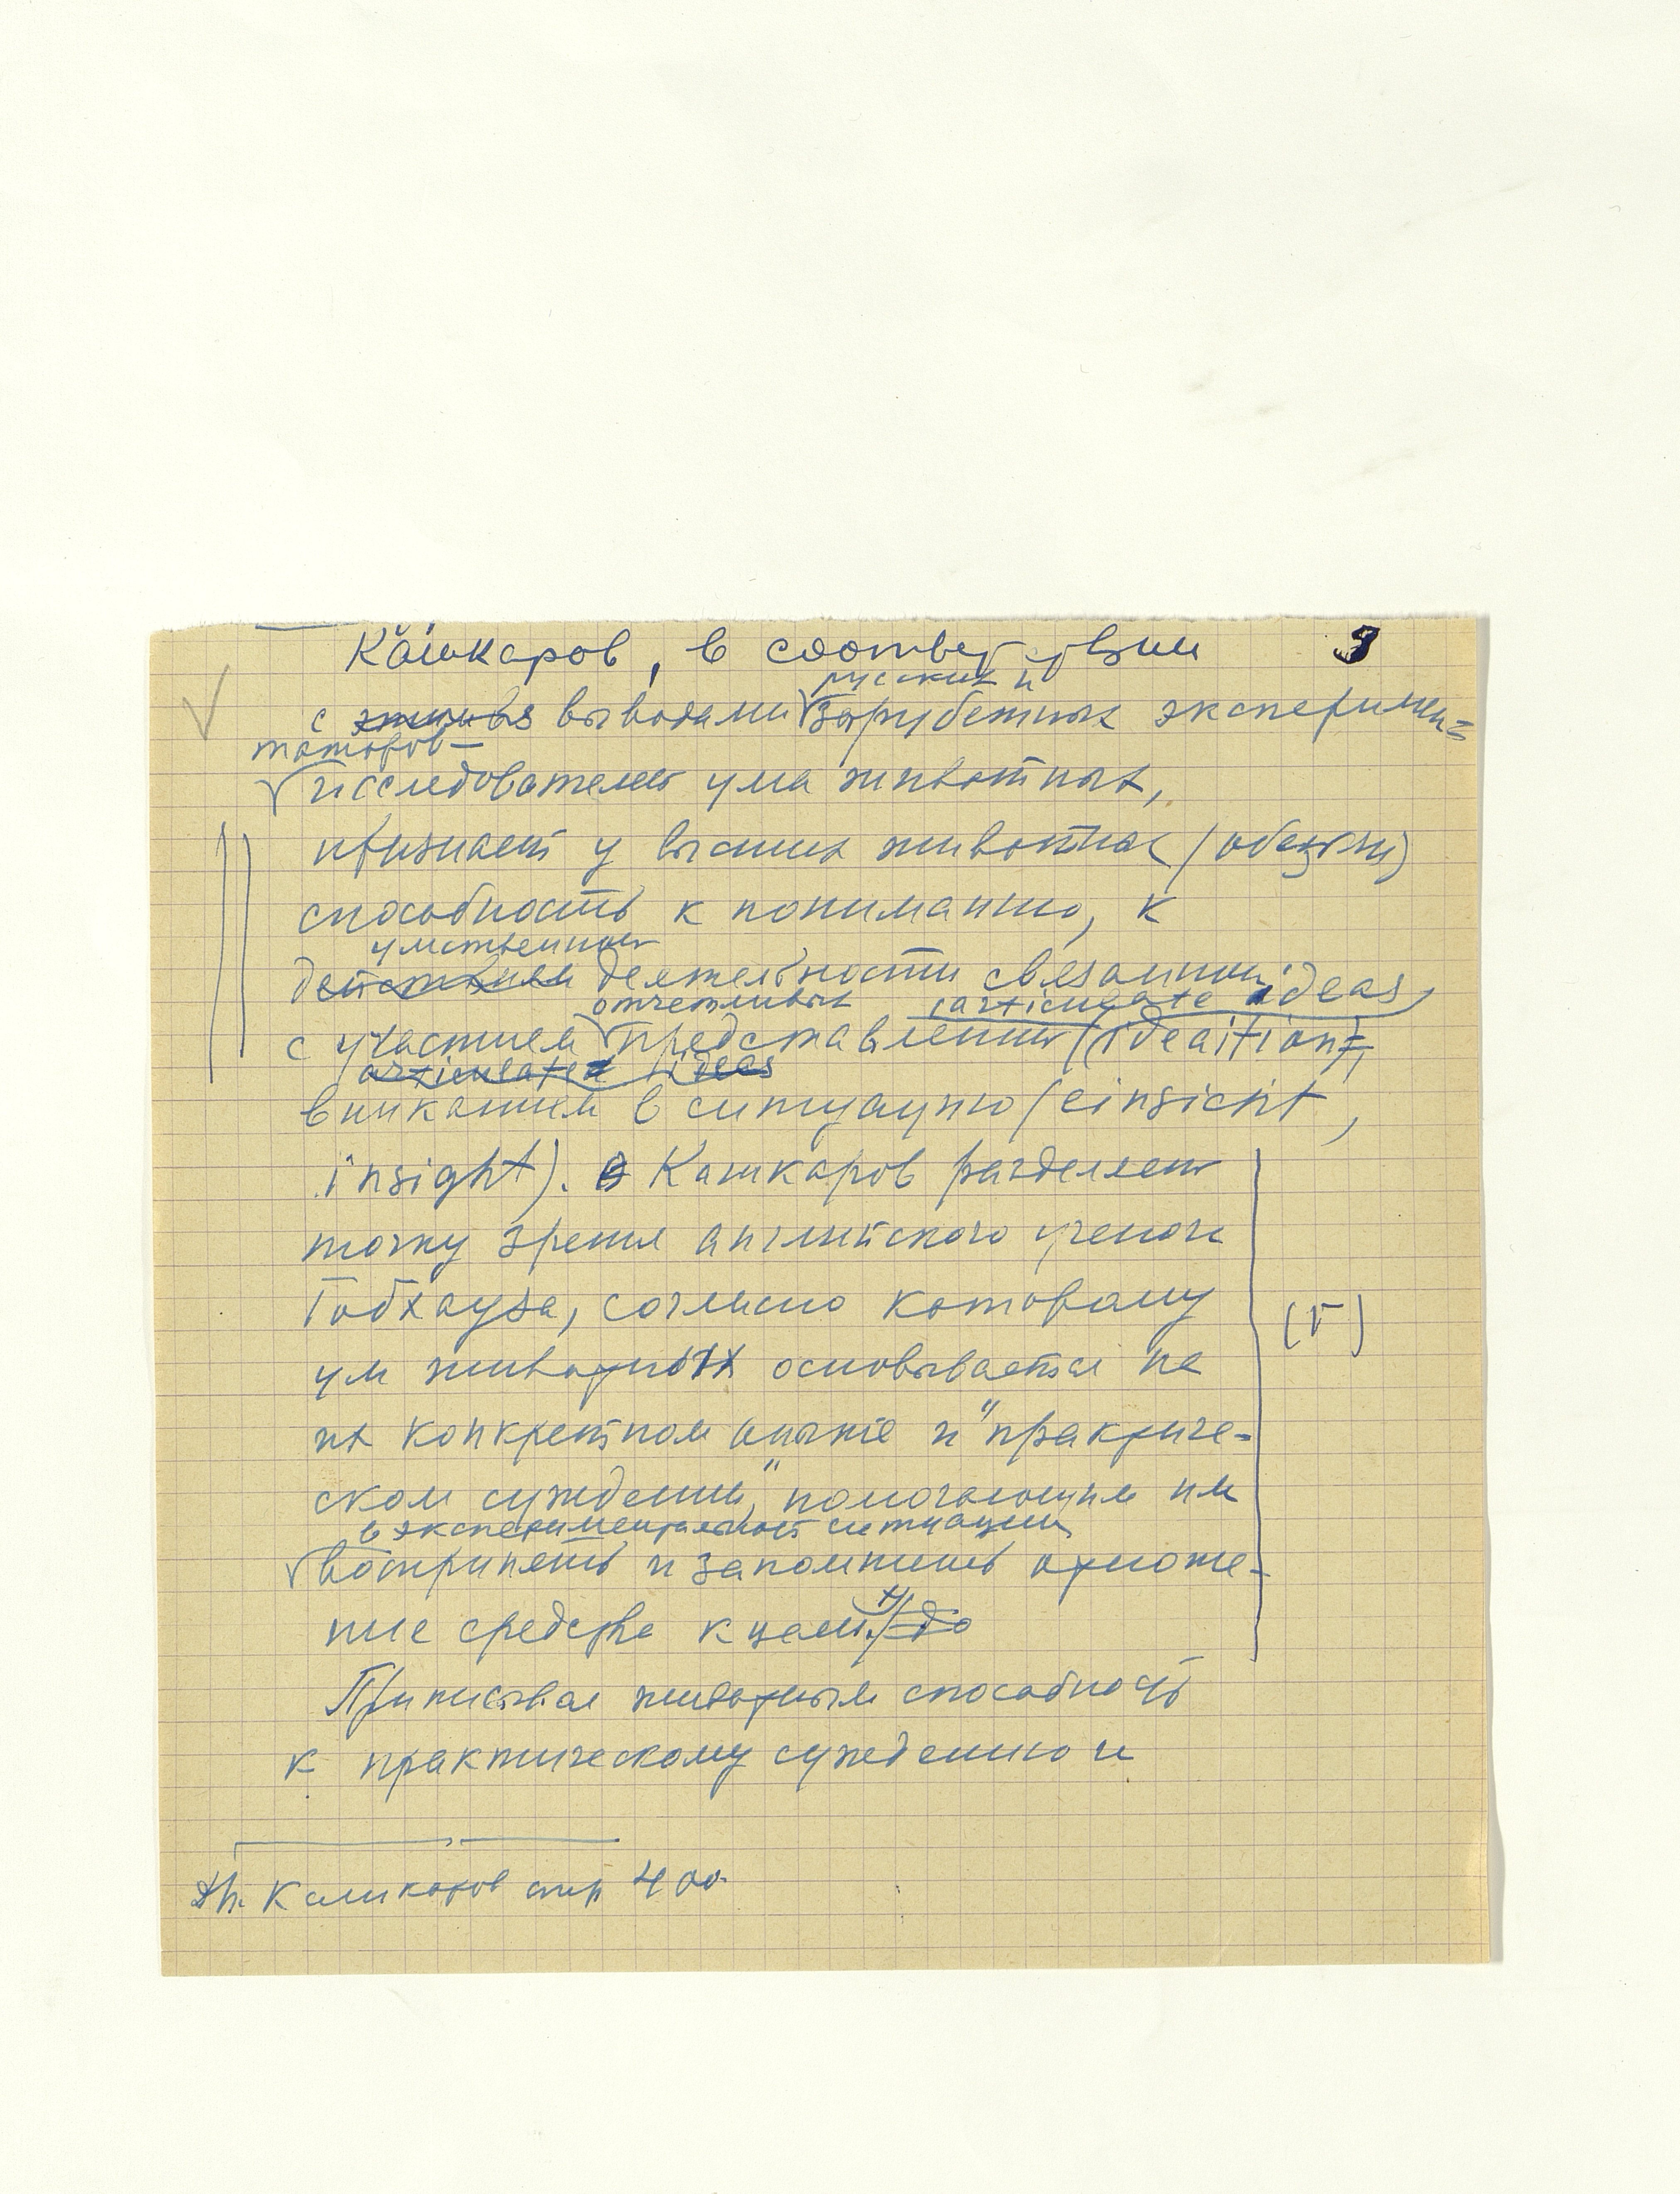 Кашкаров, в соответствии 9
русских и
с этими выводами зарубежных эксперимен=
таторов-
исследователей ума животных,
признает у высших животных (обезьян)
способность к пониманию, к
умственной
действиям деятельности связанной
отчетливых (articulate ideas,
с участием представлений (ideaition),
articulated ideas
вниканием в ситуацию (einsicht,
insight). В Кашкаров разделяет
точку зрения английского ученого
Гобхауза, согласно которому
ум животных основывается на
их конкретном опыте и "практиче-
ском суждении", помогающим им
в экспериментальной ситуации
воспринять и запомнить отноше-
ние средства к цели. x) до
(Г)
Приписывая животным способность
к практическому суждению и
Кашкаров стр 400.